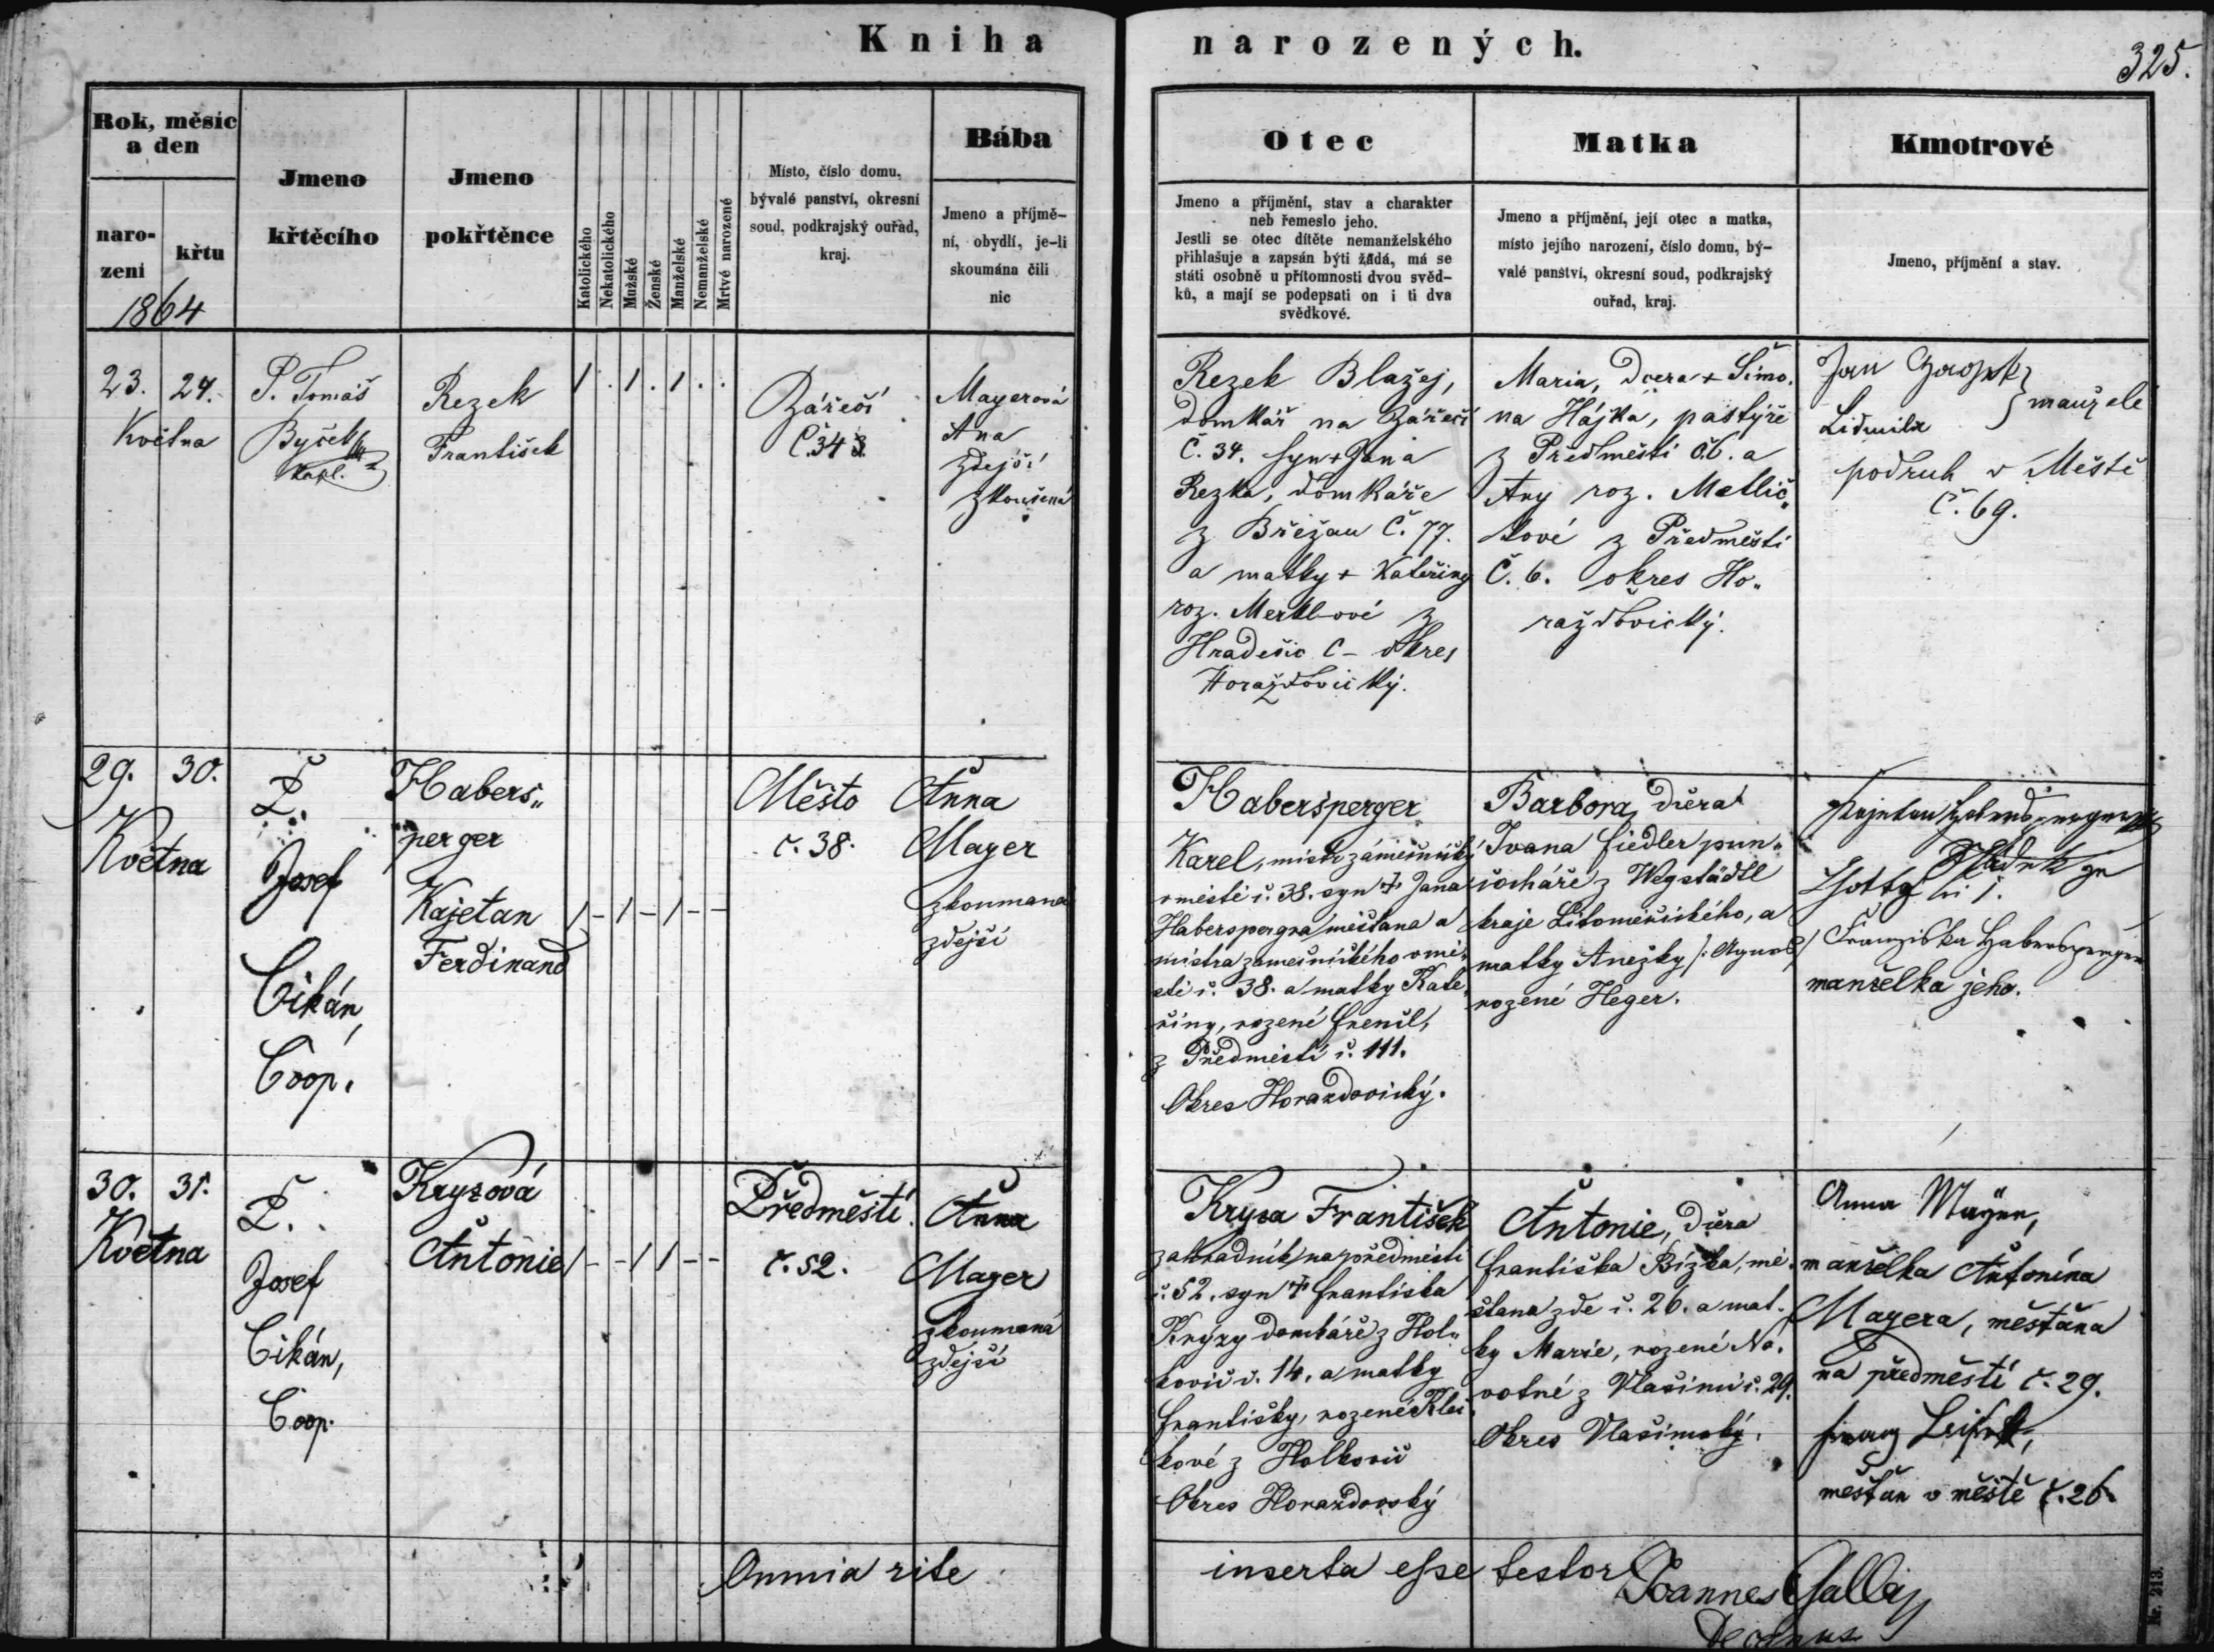 Kniha narozených.
325.
Rok, měsíc
a den
naro-
zení
křtu
1864
Jmeno
křtěcího
Jmeno
pokřtěnce
Katolického
Nekatolického
Mužské
Ženské
Manželské
Nemanželské
Mrtvé narozené
Místo, číslo domu,
bývalé panství, okresní
soud, podkrajský ouřad,
kraj.
Bába
Jmeno a příjmě-
ní, obydlí, je-li
skoumána čili
nic
Otec
Jmeno a příjmění, stav a charakter
neb řemeslo jeho.
Jestli se otec dítěte nemanželského
přihlašuje a zapsán býti žádá, má se
státi osobně u přítomnosti dvou svěd-
ků, a mají se podepsati on i ti dva
svědkové.
Matka
Jmeno a příjmění, její otec a matka,
místo jejího narození, číslo domu, bý-
valé panství, okresní soud, podkrajský
ouřad, kraj.
Kmotrové
Jmeno, příjmění a stav.
23. 24.
Května
P. Tomáš
Byček
Kapl.
Rezek
František
1 . 1 . 1 . .
Zářečí
Č. 34
Mayerová
Ana
zdejší
zkoušená
Rezek Blažej,
domkář na Zářečí
Č. 34. syn + Jana
Rezka, domkáře
z Břežan Č. 77.
a matky + Kateřiny
roz. Merklové z
Hradešic C – okres
Horažďovický.
Maria, dcera + Šimo„
na Hájka, pastýře
z Předměstí č. 6. a
Any roz. Matlič„
kové z Předměstí
Č. 6. okres Ho„
ražďovický.
Jan
Lidmila
manželé
podruh v Městě
Č. 69.
29. 30.
Května
P.
Josef
Cikán,
Coop.
Habers„
perger
Kajetan
Ferdinand
1 – 1 – 1 – –
Město
č. 38.
Anna
Mayer
zkoumaná
zdejší
Habersperger
Karel, mistr zámečnický
v městě č. 38. syn † Jana
Haberspergra měšťana a
mistra zámečnického v mě„
stě č. 38. a matky Kate„
řiny, rozené Frencl,
z Předměstí č. 111.
Okres Horažďovický.
Barbora, dcera
Ivana Fiedler pun„
čocháře z Wegstädtl
kraje Litoměřického, a
matky Anežky /: Agnes /
rozené Heger.
Kajetan Habersperger
Franziska Habersperger
manželka jeho.
30. 31.
Května
P.
Josef
Cikán,
Coop.
Kryzová
Antonie
1 – – 1 1 – –
Předměstí
č. 52.
Anna
Mayer
zkoumaná
zdejší
Kryza František
zahradník na předměstí
č. 52. syn † Františka
Kryzy domkáře z Hol„
kovic č. 14. a matky
Františky, rozené
kové z Holkovic
Okres Horažďovský
Antonie, dcera
Františka Bízka, mě„
šťana zde č. 26. a mat„
ky Marie, rozené No„
votné z Vlašimi č. 29.
Okres Vlašimský.
Anna Mayer,
manželka Antonína
Mayera, měšťana
na předměstí č. 29.
Franz
měšťan v městě č. 26.
Omnia rite inserta esse testor Joannes Gallis
Decanus
Nr. 213.